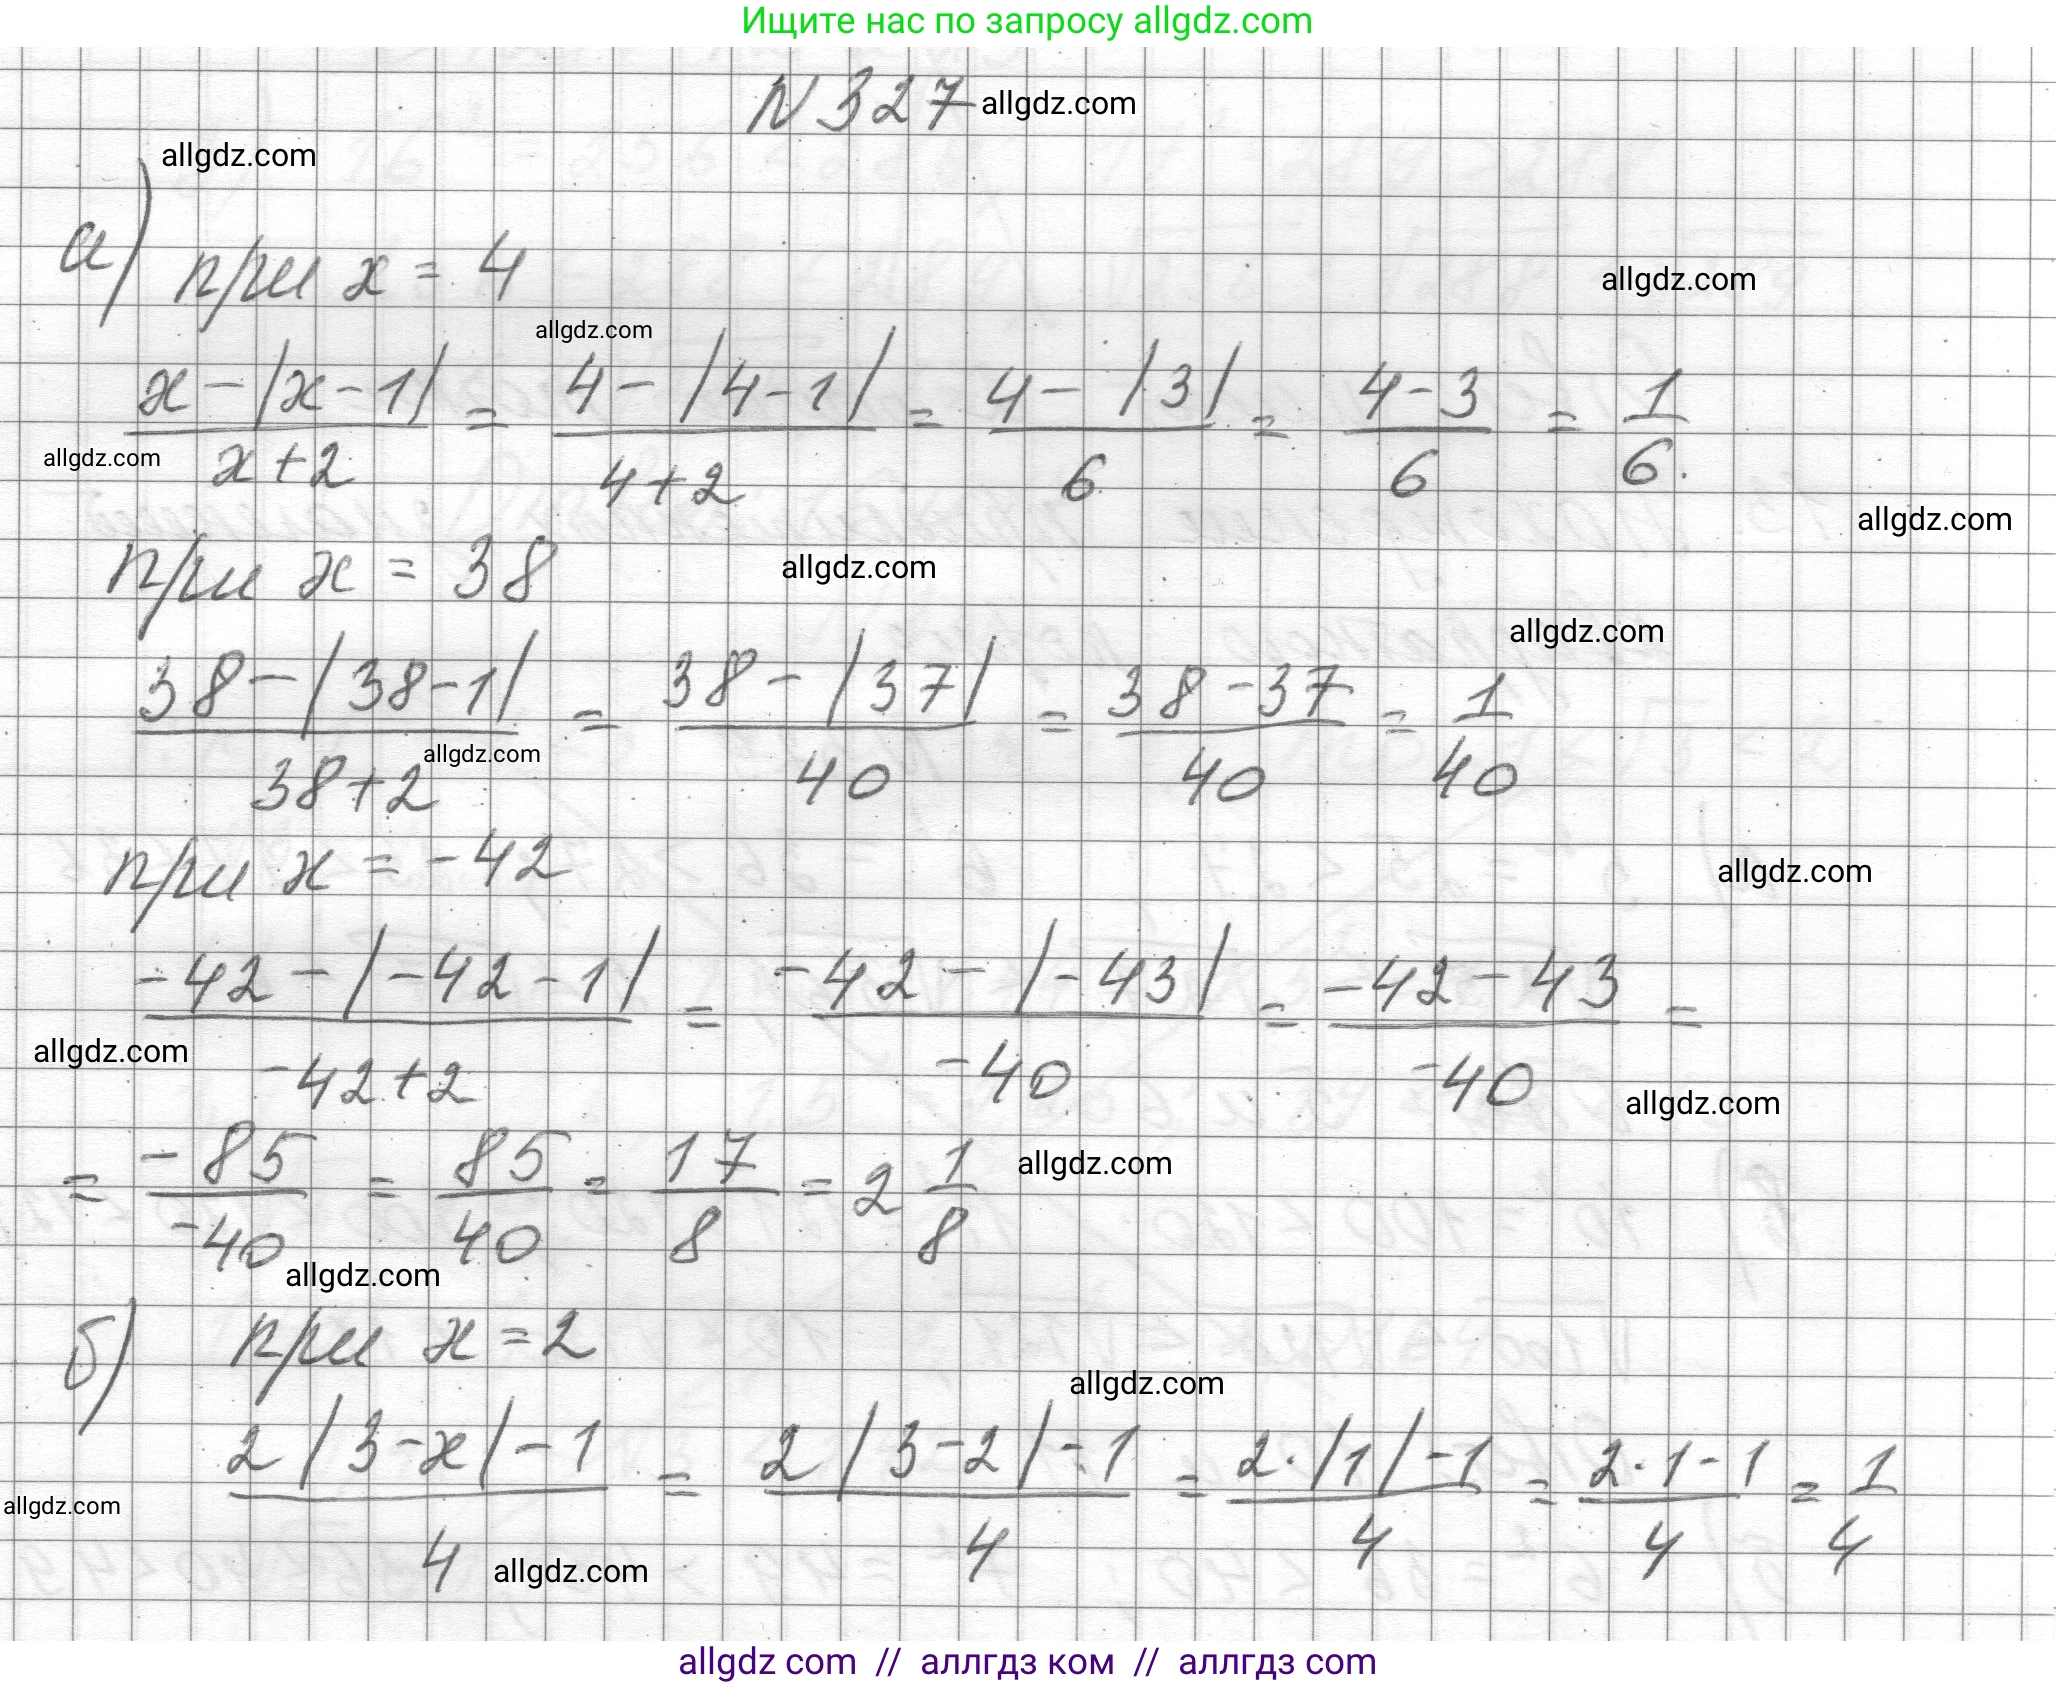 Ищите нас по запросу allgdz.com
N 327 allgdz.com
allgdz.com
а) при x = 4
allgdz.com
allgdz.com
(x - |x - 1|)/(x + 2) = (4 - |4 - 1|)/(4 + 2) = (4 - |3|)/6 = (4 - 3)/6 = 1/6.
allgdz.com
allgdz.com
при x = 38
allgdz.com
allgdz.com
(38 - |38 - 1|)/(38 + 2) = (38 - |37|)/40 = (38 - 37)/40 = 1/40
allgdz.com
при x = -42
allgdz.com
(-42 - |-42 - 1|)/(-42 + 2) = (-42 - |-43|)/(-40) = (-42 - 43)/(-40) =
allgdz.com
allgdz.com
= (-85)/(-40) = 85/40 = 17/8 = 2 1/8
allgdz.com
allgdz.com
б) при x = 2
allgdz.com
(2|3 - x| - 1)/4 = (2|3 - 2| - 1)/4 = (2·|1| - 1)/4 = (2·1 - 1)/4 = 1/4
allgdz.com
allgdz.com
allgdz com // аллгдз ком // аллгдз com